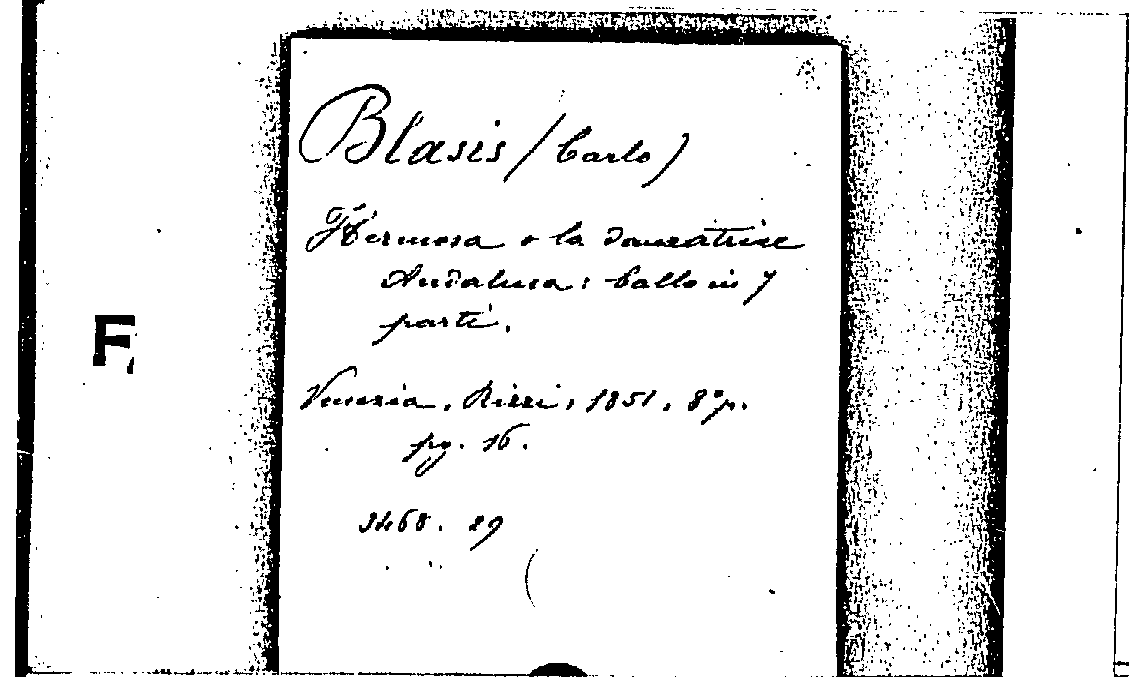 Blasis (Carlo)
Hermosa o la danzatrice
Andalusa: ballo in 7
parti.
F
Venezia, Rizzi, 1851, 8° p.
pg. 16.
2468. 29